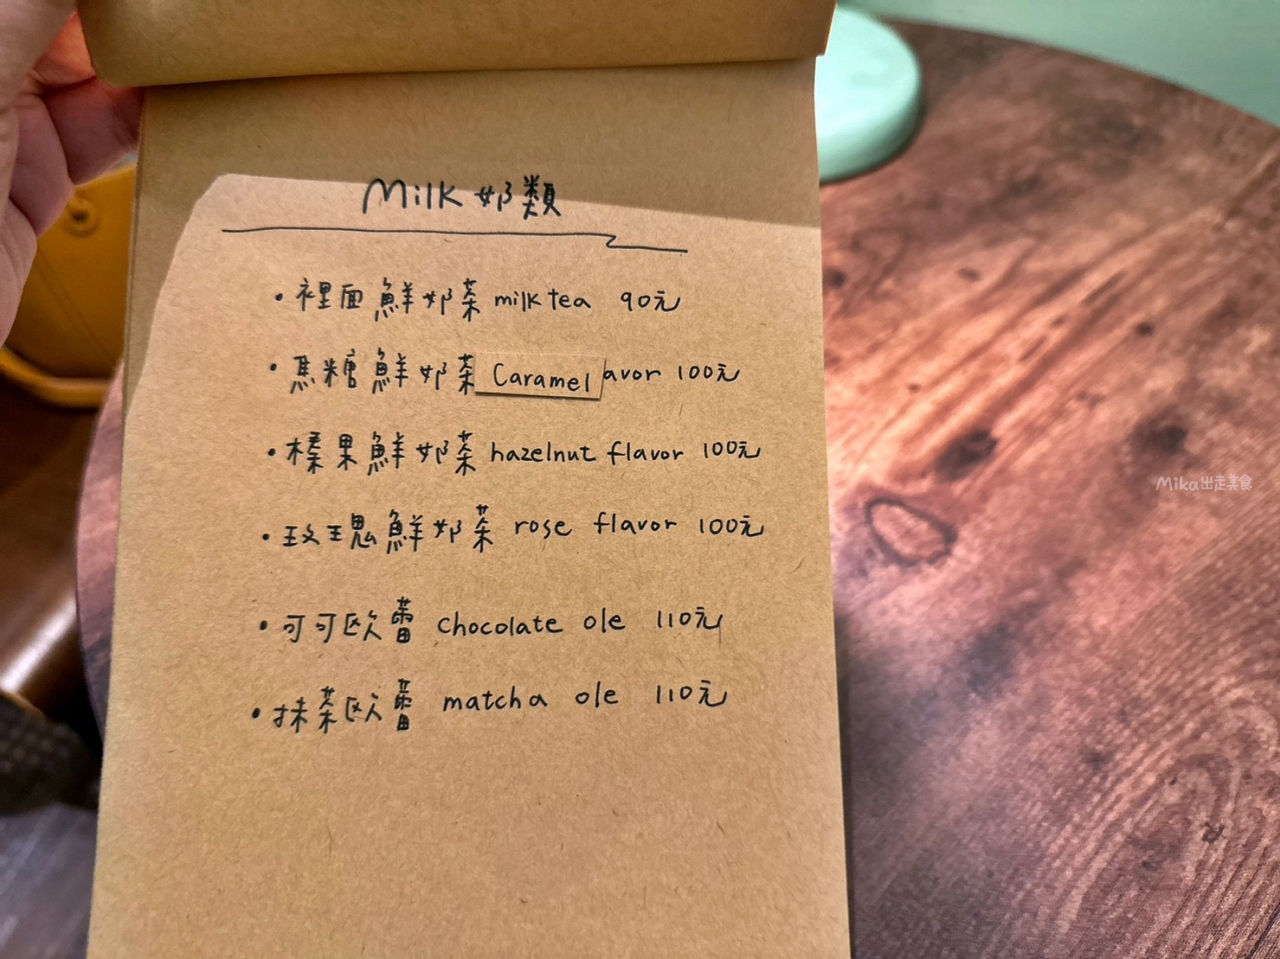 Milk 奶類
• 裡面鮮奶茶 milk tea 90元
• 焦糖鮮奶茶 Caramel avor 100元
• 榛果鮮奶茶 hazelnut flavor 100元
• 玫瑰鮮奶茶 rose flavor 100元
• 可可歐蕾 chocolate ole 110元
• 抹茶歐蕾 matcha ole 110元
Mika出走美食